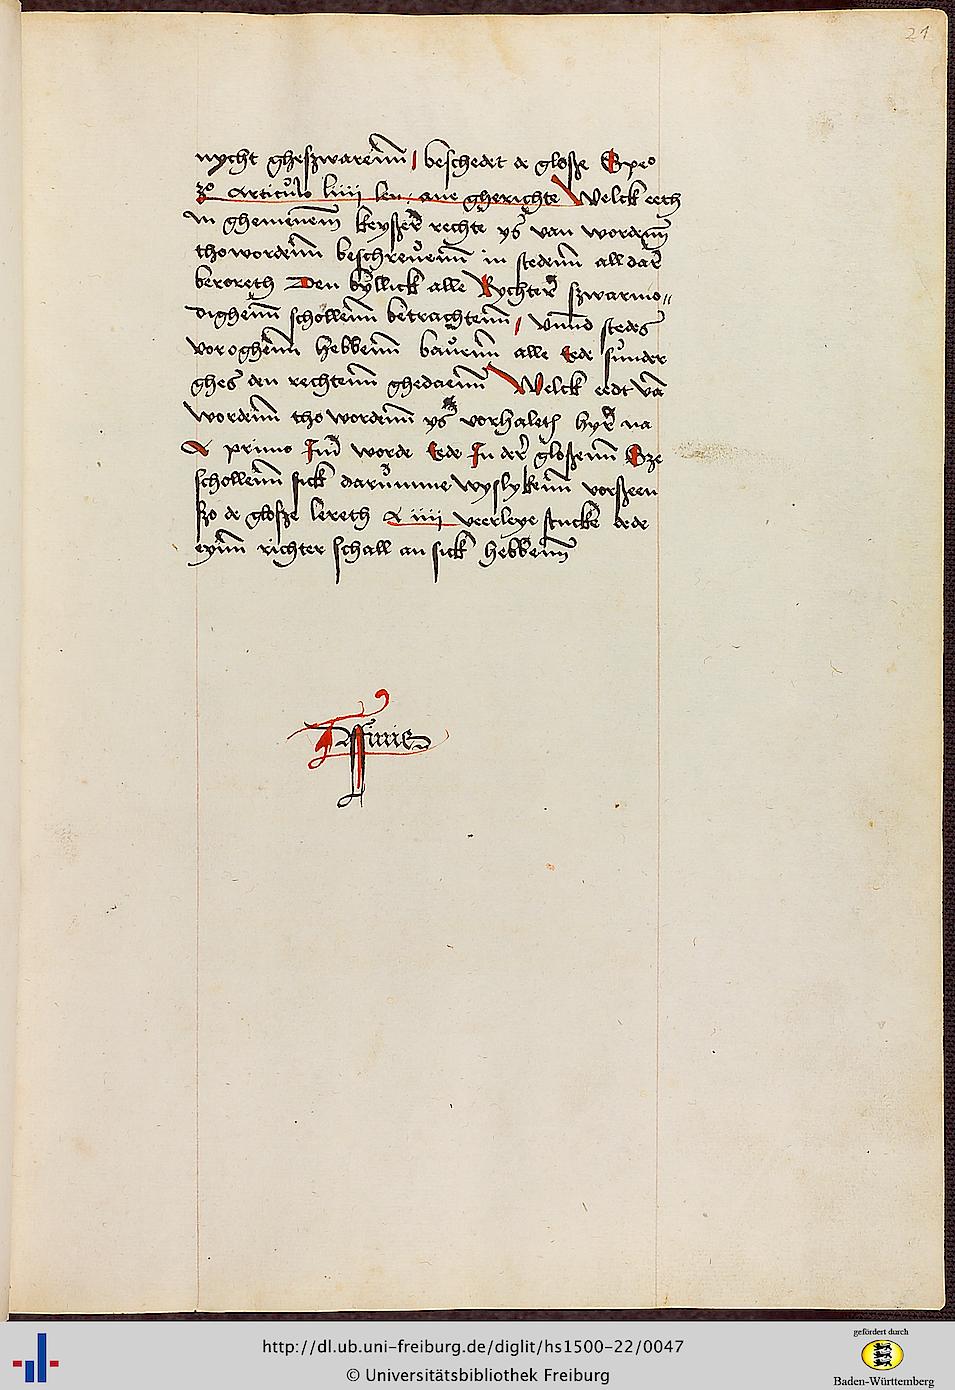 21
nycht gheszwarenn beschedet de glosze Spe
zo Articulo liiii len. ane gherichte Welck eeth
in ghemeinem keyszer rechte ys van wordenn
thowordenn beschreuenn in stedenn all dar
beroreth Den byllick alle Rychter szwarmo=
dighenn schollenn betrachtenn vnnd stedes
vor oghenn hebbenn bauenn alle Eede sunder
ghes den rechtenn ghedaenn Welck eedt van
wordenn tho wordenn ys vorhaleth hyr na
primo Inn worde Eede In der gloszenn Sze
schollenn sick darumme wyslykenn vorszeen
szo de glosze lereth iiii veerleye stucke dede
eynn richter schall an sick hebbenn
http://dl.ub.uni-freiburg.de/diglit/hs1500-22/0047
© Universitätsbibliothek Freiburg
gefördert durch
Baden-Württemberg